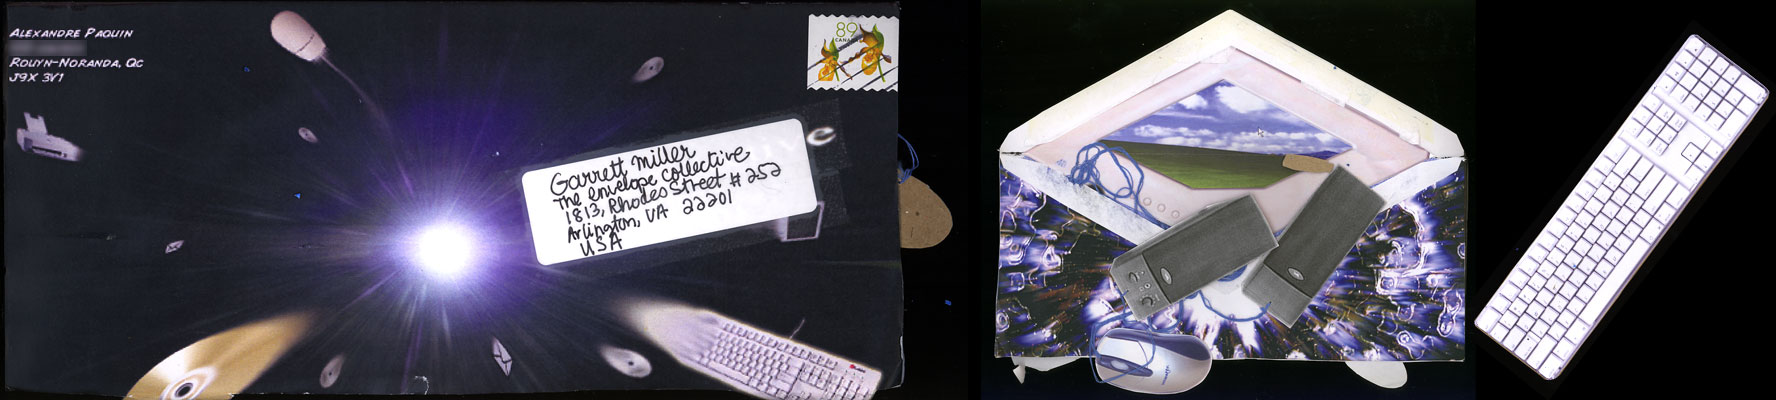 Alexandre Paquin
Rouyn-Noranda, Qc
J9X 3V1
89
CANADA
Garrett Miller
The envelope collective
1813, Rhodes Street # 252
Arlington, VA 22201
USA